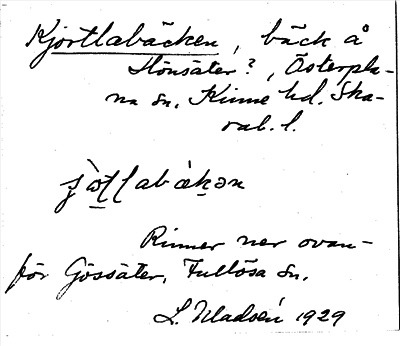 Kjortlabäcken, bäck å
Hönsäter?, Österpla-
na sn. Kinne hd. Ska-
rab. l.
Rinner ner ovan-
för Gössäter, Fullösa sn.
1929